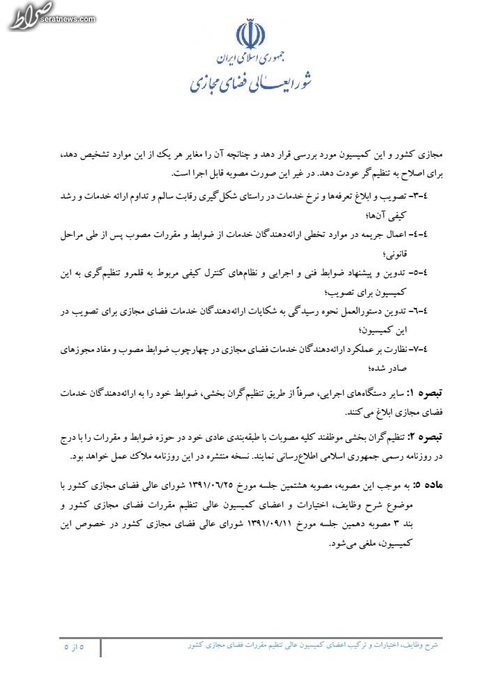 صراط
seratnews.com
جمهوری اسلامی ایران
شورایعالی فضای مجازی
مجازی کشور و این کمیسیون مورد بررسی قرار دهد و چنانچه آن را مغایر هر یک از این موارد تشخیص دهد،
برای اصلاح به تنظیم‌گر عودت دهد. در غیر این صورت مصوبه قابل اجرا است.
۴-۳- تصویب و ابلاغ تعرفه‌ها و نرخ خدمات در راستای شکل‌گیری رقابت سالم و تداوم ارائه خدمات و رشد
کیفی آن‌ها؛
۴-۴- اعمال جریمه در موارد تخطی ارائه‌دهندگان خدمات از ضوابط و مقررات مصوب پس از طی مراحل
قانونی؛
۴-۵- تدوین و پیشنهاد ضوابط فنی و اجرایی و نظام‌های کنترل کیفی مربوط به قلمرو تنظیم‌گری به این
کمیسیون برای تصویب؛
۴-۶- تدوین دستورالعمل نحوه رسیدگی به شکایات ارائه‌دهندگان خدمات فضای مجازی برای تصویب در
این کمیسیون؛
۴-۷- نظارت بر عملکرد ارائه‌دهندگان خدمات فضای مجازی در چهارچوب ضوابط مصوب و مفاد مجوزهای
صادر شده؛
تبصره ۱: سایر دستگاه‌های اجرایی، صرفاً از طریق تنظیم‌گران بخشی، ضوابط خود را به ارائه‌دهندگان خدمات
فضای مجازی ابلاغ می‌کنند.
تبصره ۲: تنظیم‌گران بخشی موظفند کلیه مصوبات با طبقه‌بندی عادی خود در حوزه ضوابط و مقررات را با درج
در روزنامه رسمی جمهوری اسلامی اطلاع‌رسانی نمایند. نسخه منتشره در این روزنامه ملاک عمل خواهد بود.
ماده ۵: به موجب این مصوبه، مصوبه هشتمین جلسه مورخ ۱۳۹۱/۰۶/۲۵ شورای عالی فضای مجازی کشور با
موضوع شرح وظایف، اختیارات و اعضای کمیسیون عالی تنظیم مقررات فضای مجازی کشور و
بند ۳ مصوبه دهمین جلسه مورخ ۱۳۹۱/۰۹/۱۱ شورای عالی فضای مجازی کشور در خصوص این
کمیسیون، ملغی می‌شود.
شرح وظایف، اختیارات و ترکیب اعضای کمیسیون عالی تنظیم مقررات فضای مجازی کشور
۵ از ۵